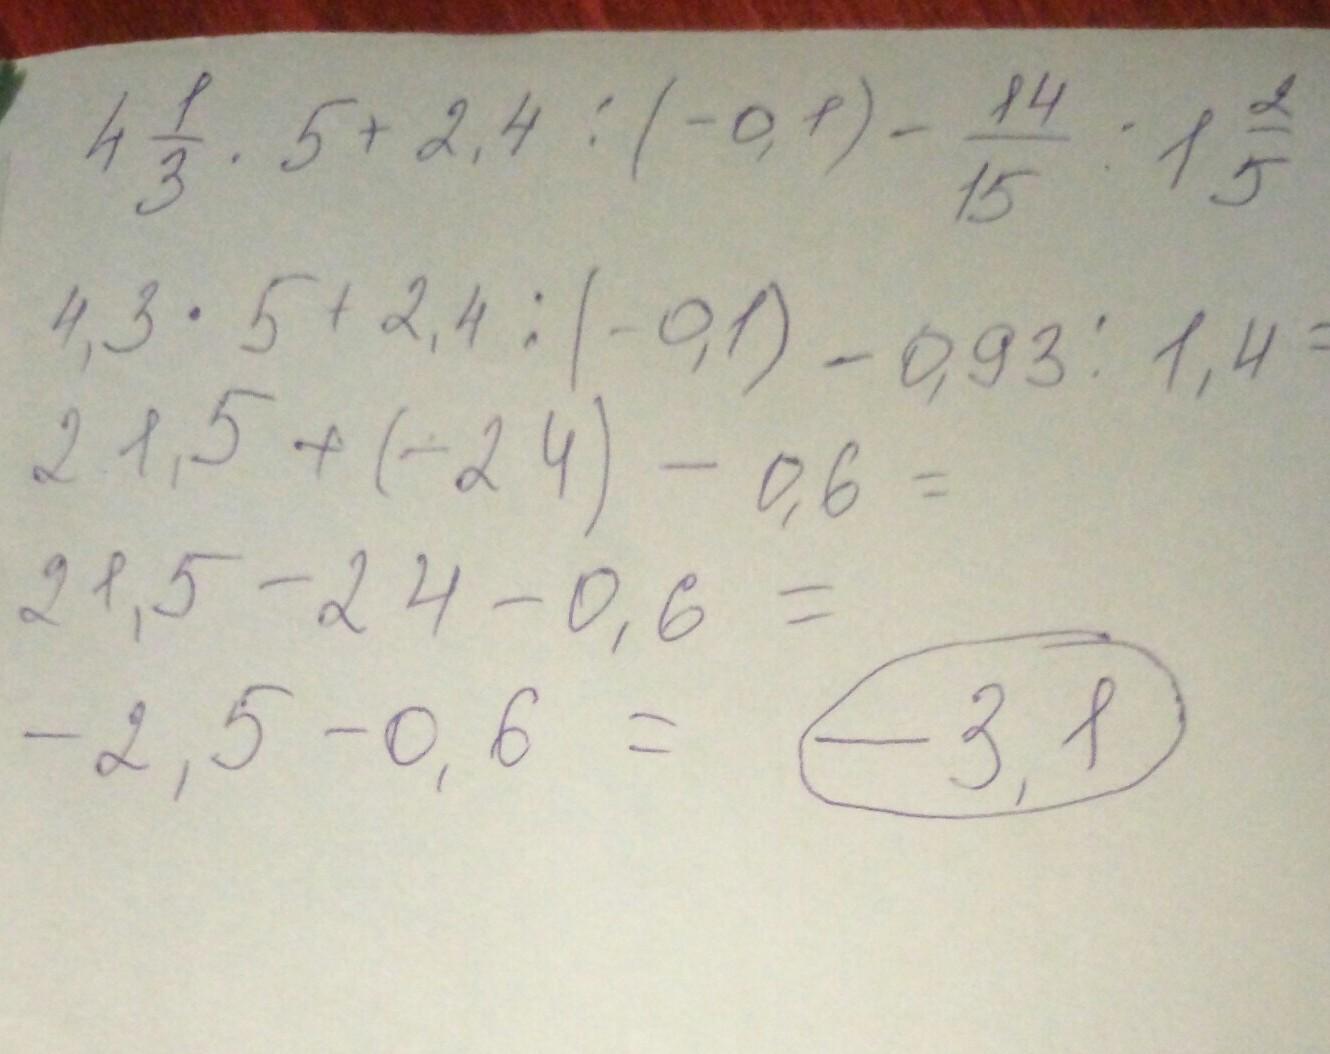 4 1/3 · 5 + 2,4 : (-0,1) - 14/15 : 1 2/5
4,3 · 5 + 2,4 : (-0,1) - 0,93 : 1,4 =
21,5 + (-24) - 0,6 =
21,5 - 24 - 0,6 =
-2,5 - 0,6 = -3,1